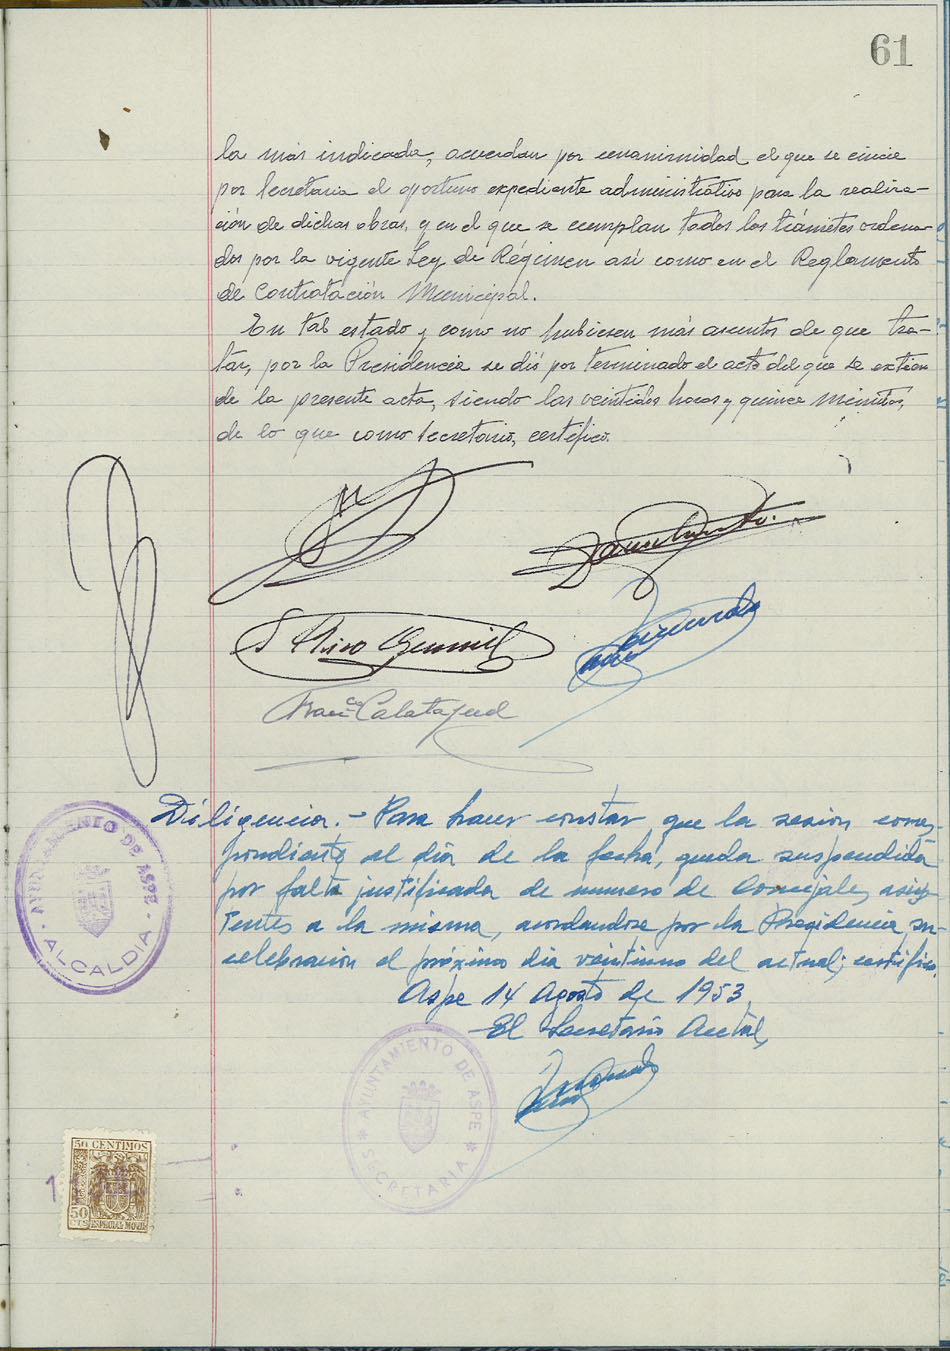 61
la más indicada, acuerdan por unanimidad el que se inicie
por Secretaria el oportuno expediente administrativo para la realiza-
ción de dichas obras, y en el que se cumplan todos los trámites ordena-
dos por la vigente Ley de Régimen así como en el Reglamento
de Contratación Municipal.
En tal estado y como no hubiesen más asuntos de que tra-
tar, por la Presidencia se dió por terminado el acto del que se extiende
de la presente acta, siendo las veintidos horas y quince minutos,
de lo que como Secretario, certifico.
Franco Calatayud
Diligencia.- Para hacer constar que la sesion corres-
pondiente al día de la fecha, queda suspendida
por falta justificada de numero de Concejales asis-
tentes a la misma, acordandose por la Presidencia su
celebracion el próximo dia veintiuno del actual; certifico.
Aspe 14 Agosto de 1953,
El Secretario Acctal,
AYUNTAMIENTO DE ASPE
ALCALDIA
AYUNTAMIENTO DE ASPE
SECRETARIA
50 CENTIMOS
50
CTS
ESPECIAL MOVIL